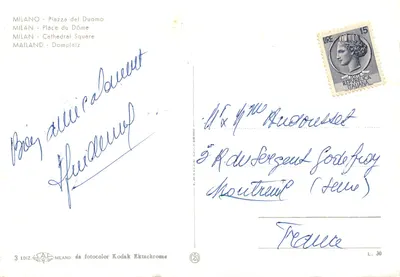 MILANO - Piazza del Duomo
MILAN - Place du Dôme
MILAN - Cathedral Square
MAILAND - Domplatz
Bien amicalement
15
Mr & Mme Audousset
5 R du Sergent Godefroy
Montreuil (Seine)
France
3
MILANO
da fotocolor Kodak Ektachrome
L. 30